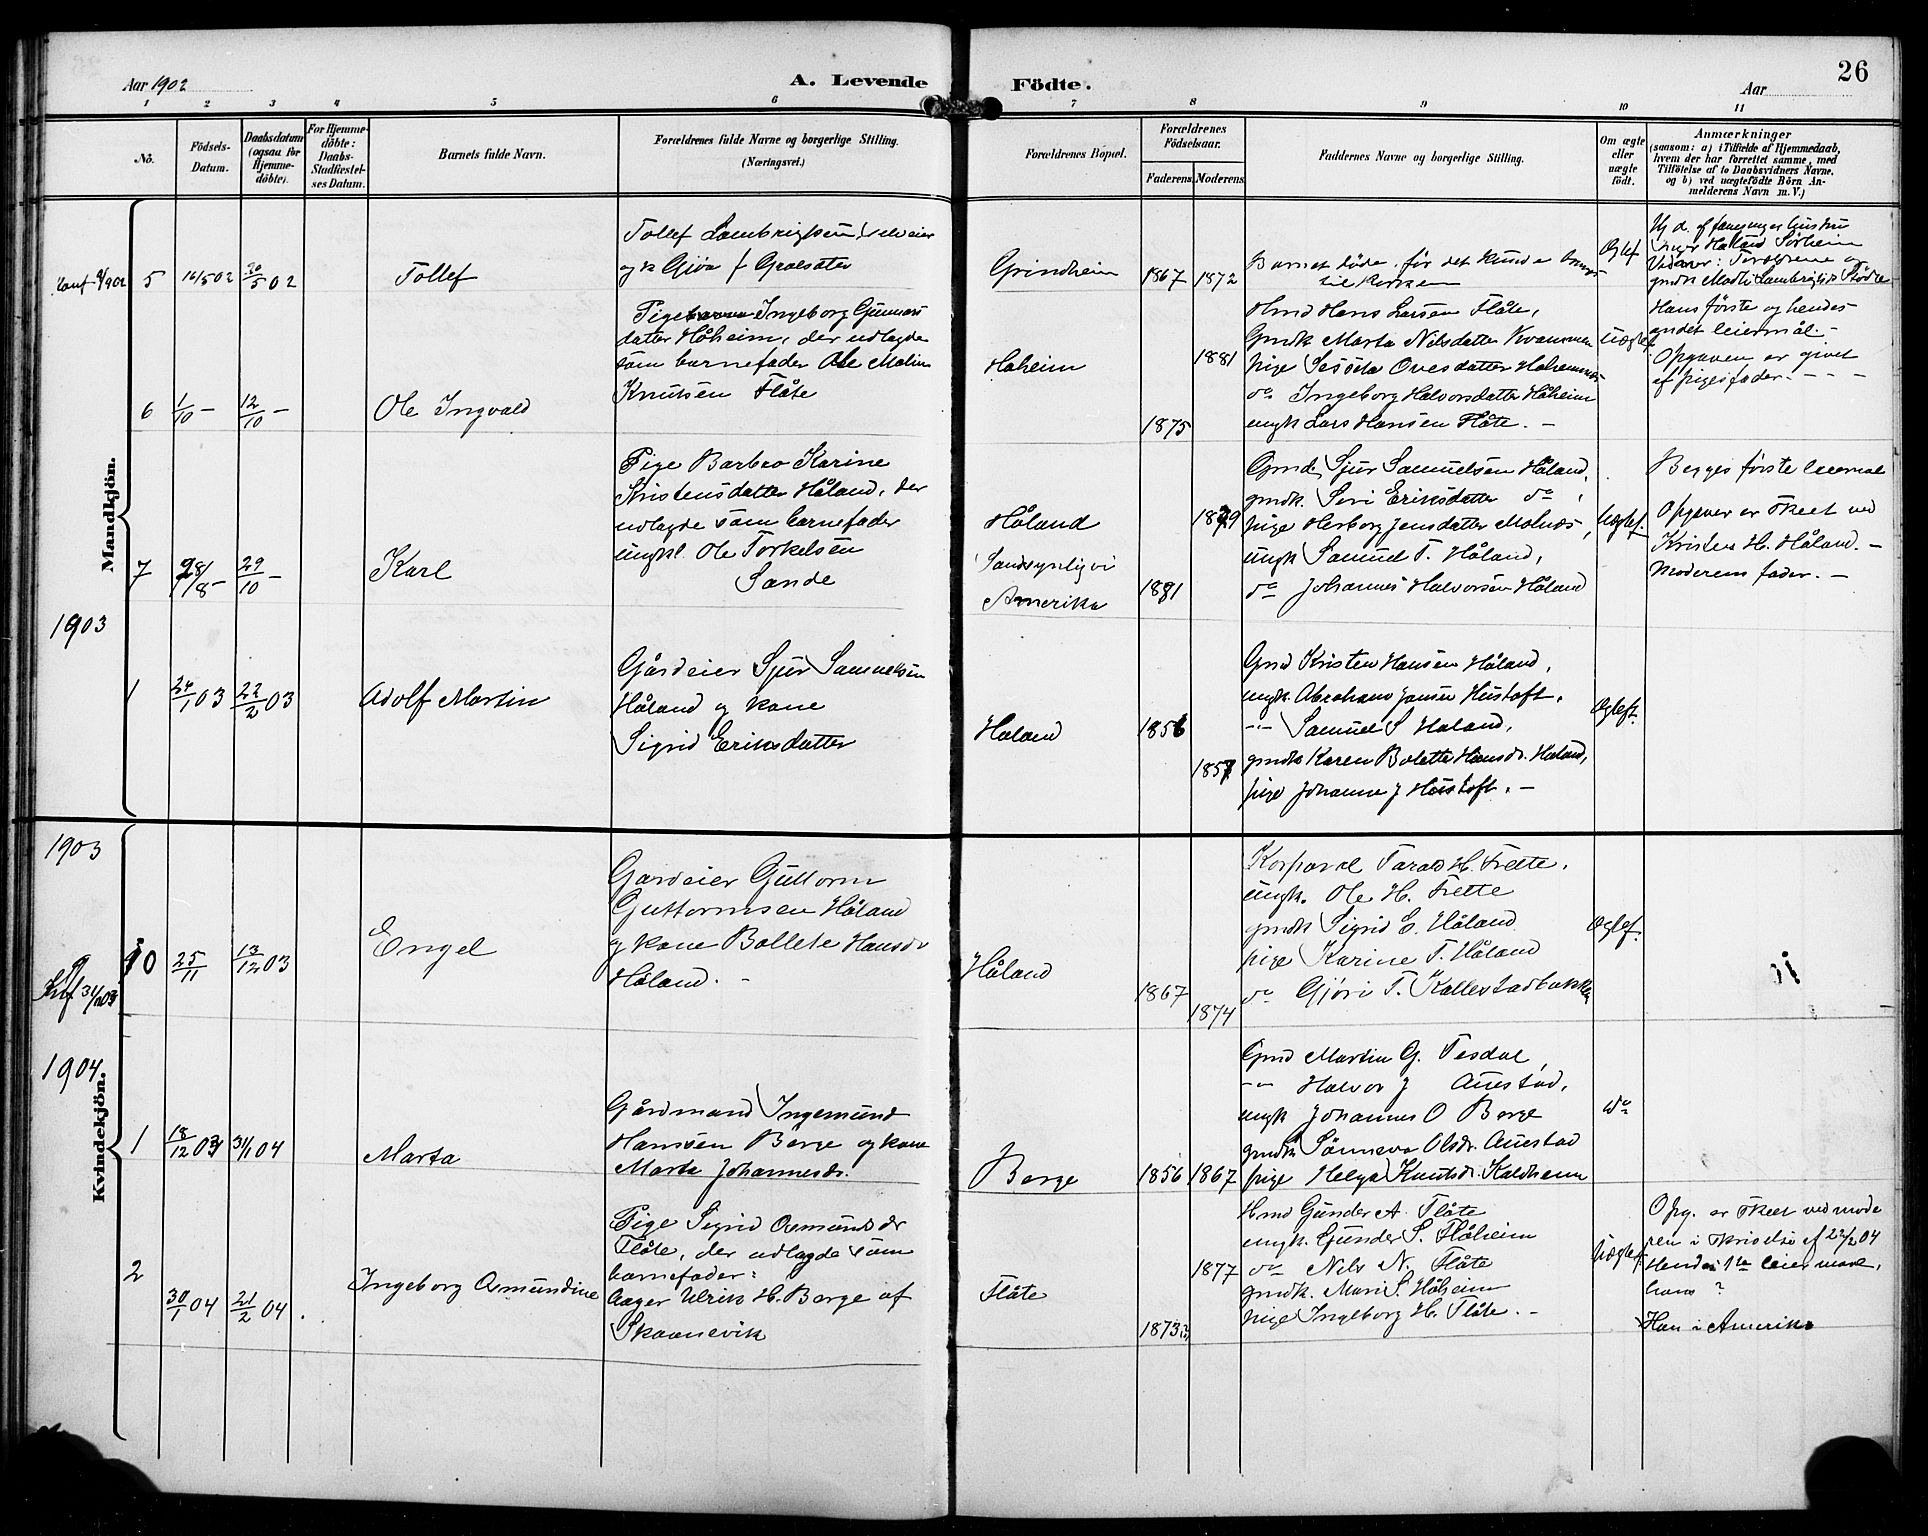 26
Aar 1902
A. Levende Födte.
Aar
1 2 3 4 5 6 7 8 9 10 11
No.
Födsels-Datum.
Daabsdatum (ogsaa for Hjemme-döbte).
For Hjemme-döbte: Daabs-Stadfæstel-ses Datum.
Barnets fulde Navn.
Forældrenes fulde Navne og borgerlige Stilling.
(Næringsvei.)
Forældrenes Bopæl.
Forældrenes Födselsaar.
Faderens. Moderens.
Faddernes Navne og borgerlige Stilling.
Om ægte eller uægte födt.
Anmærkninger
(saasom: a) i Tilfælde af Hjemmedaab,
hvem der har forrettet samme, med
Tilföielse af to Daabsvidners Navne,
og b) ved uægtefödte Börn An-
melderens Navn m. V.)
Mandkjön.
5
16/5 02
30/5 02
Tollef
Tollef Lambrigtsen, selveier
Grindheim
1867
1872
Barnet döde för det kunde
til kirken
6
1/10 –
12/10 –
Ole Ingvald
Pige Ingeborg Gunnars
datter Håheim, der udlagde
som barnefader Ole Malin
Knutsen Flåte
Håheim
1875
1881
Hmd Hans Larsen Flåte,
Gmdk Marta Nilsdatter
pige Ovesdatter
do Ingeborg Halvorsdatter Håheim
ungk Lars Hansen Flåte. –
Uægtef
Hans förste og hendes
andet leiermål. –
Opgaven er givet
af piges fader. – – –
7
29/10 –
Karl
Pige Barbro Karine
Kristensdatter Håland, der
udlagde som barnefader
ungkl. Ole Torkelsen
Sande
Håland
Sandsynlig i
Amerika
1881
1879
Gmd Sjur Samuelsen Håland,
gmdk. Siri Eriksdatter do,
pige Herborg Jensdatter Molnes,
ungk Samuel T. Håland,
do Johannes Halvorsen Håland
Uægtef.
Begges förste leiermål
Opgaver er skeet ved
Kristen H. Håland. –
Moderens fader. –
1903
1
24/1 03
22/2 03
Adolf Martin
Gårdeier Sjur Samuelsen
Håland og kone
Sigrid Eriksdatter
Håland
1856
1857
Gmd Kristen Hansen Håland,
ungk. Abraham Jansen Hustoft,
– " – Samuel S Håland,
gmdk Karen Bolette Hansdr. Håland,
pige Johanne J Hustoft. –
Ægtef.
Kvindekjön.
1903
10
25/11
13/12 03
Engel
Gårdeier Guttorm
Guttormsen Håland
og kone Bollete Hansdr
Håland. –
Håland
1867
1874
Korporal Tarald H. Frette.
ungk. Ole H. Frette
gmdk Sigrid E. Håland
pige Karine T. Håland
do Gjöri T. Kallestadbakken
Ægtef.
1904
1
18/12 03
31/1 04
Marta
Gårdmand Ingemund
Hansen Berge og kone
Marta Johannesdr.
Berge
1856
1867
Gmd Martin G. Tesdal,
– " – Halvor J Auestad,
ungk Johannes O Berge
gmdk Sönneva Olsdr. Auestad
pige Helga Knutsdr. Kaldheim
do
2
30/1 04
21/2 04
Ingeborg Osmundine
Pige Sigrid Osmundsdr
Flåte, der udlagde som
barnefader:
Aager Ulrik H. Berge af
Skaanevik
Flåte
1873
1877
Hmd Gunder A. Flåte
ungk. Gunder S. Håheim
do Nils N. Flåte
gmdk. Mari S. Håheim
pige Ingeborg H. Flåte. –
Uægtef.
Opg. er skeet ved mode
ren i skrivelse af 22/2 04
Hendes 1ste leiermål,
hans ?
Han i Amerika